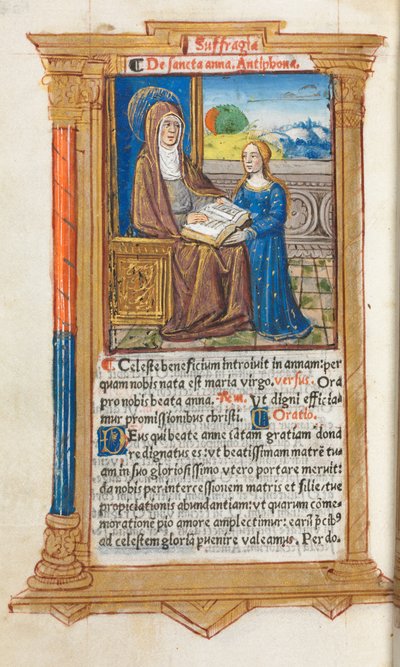 Suffragia
De sancta anna. Antiphona.
Celeste beneficium introiuit in annam: per
quam nobis nata est maria virgo. versus. Ora
pro nobis beata anna. Rem. Vt digni efficia
mur promissionibus christi. Oratio.
Deus qui beate anne cātam gratiam dona
re dignatus es: vt beatissimam matrē tu
am in suo gloriosissimo vtero portare meruit:
da nobis per intercessionem matris et filie: tue
propiciationis abundantiam: vt quarum cōme
morationē pio amore amplectimur: earū p̄cibꝰ
ad celestem gloriā puenire valeamus. Per do.